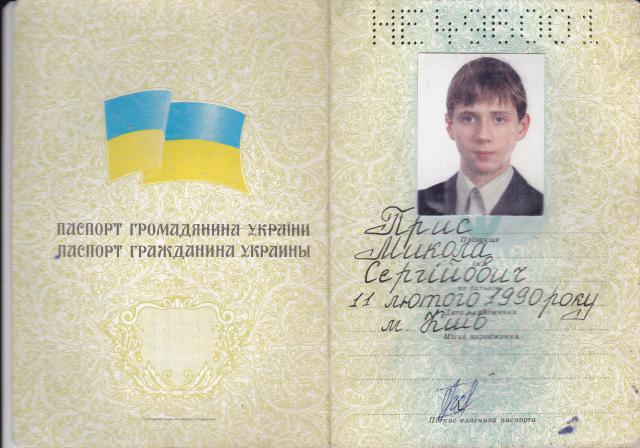 ПАСПОРТ ГРОМАДЯНИНА УКРАЇНИ
ПАСПОРТ ГРАЖДАНИНА УКРАИНЫ
НЕ 496001
Прис
Прізвище
Микола
Сергійович
по батькові
11 лютого 1990 року
Дата народження
м.
Місце народження
Підпис власника паспорта